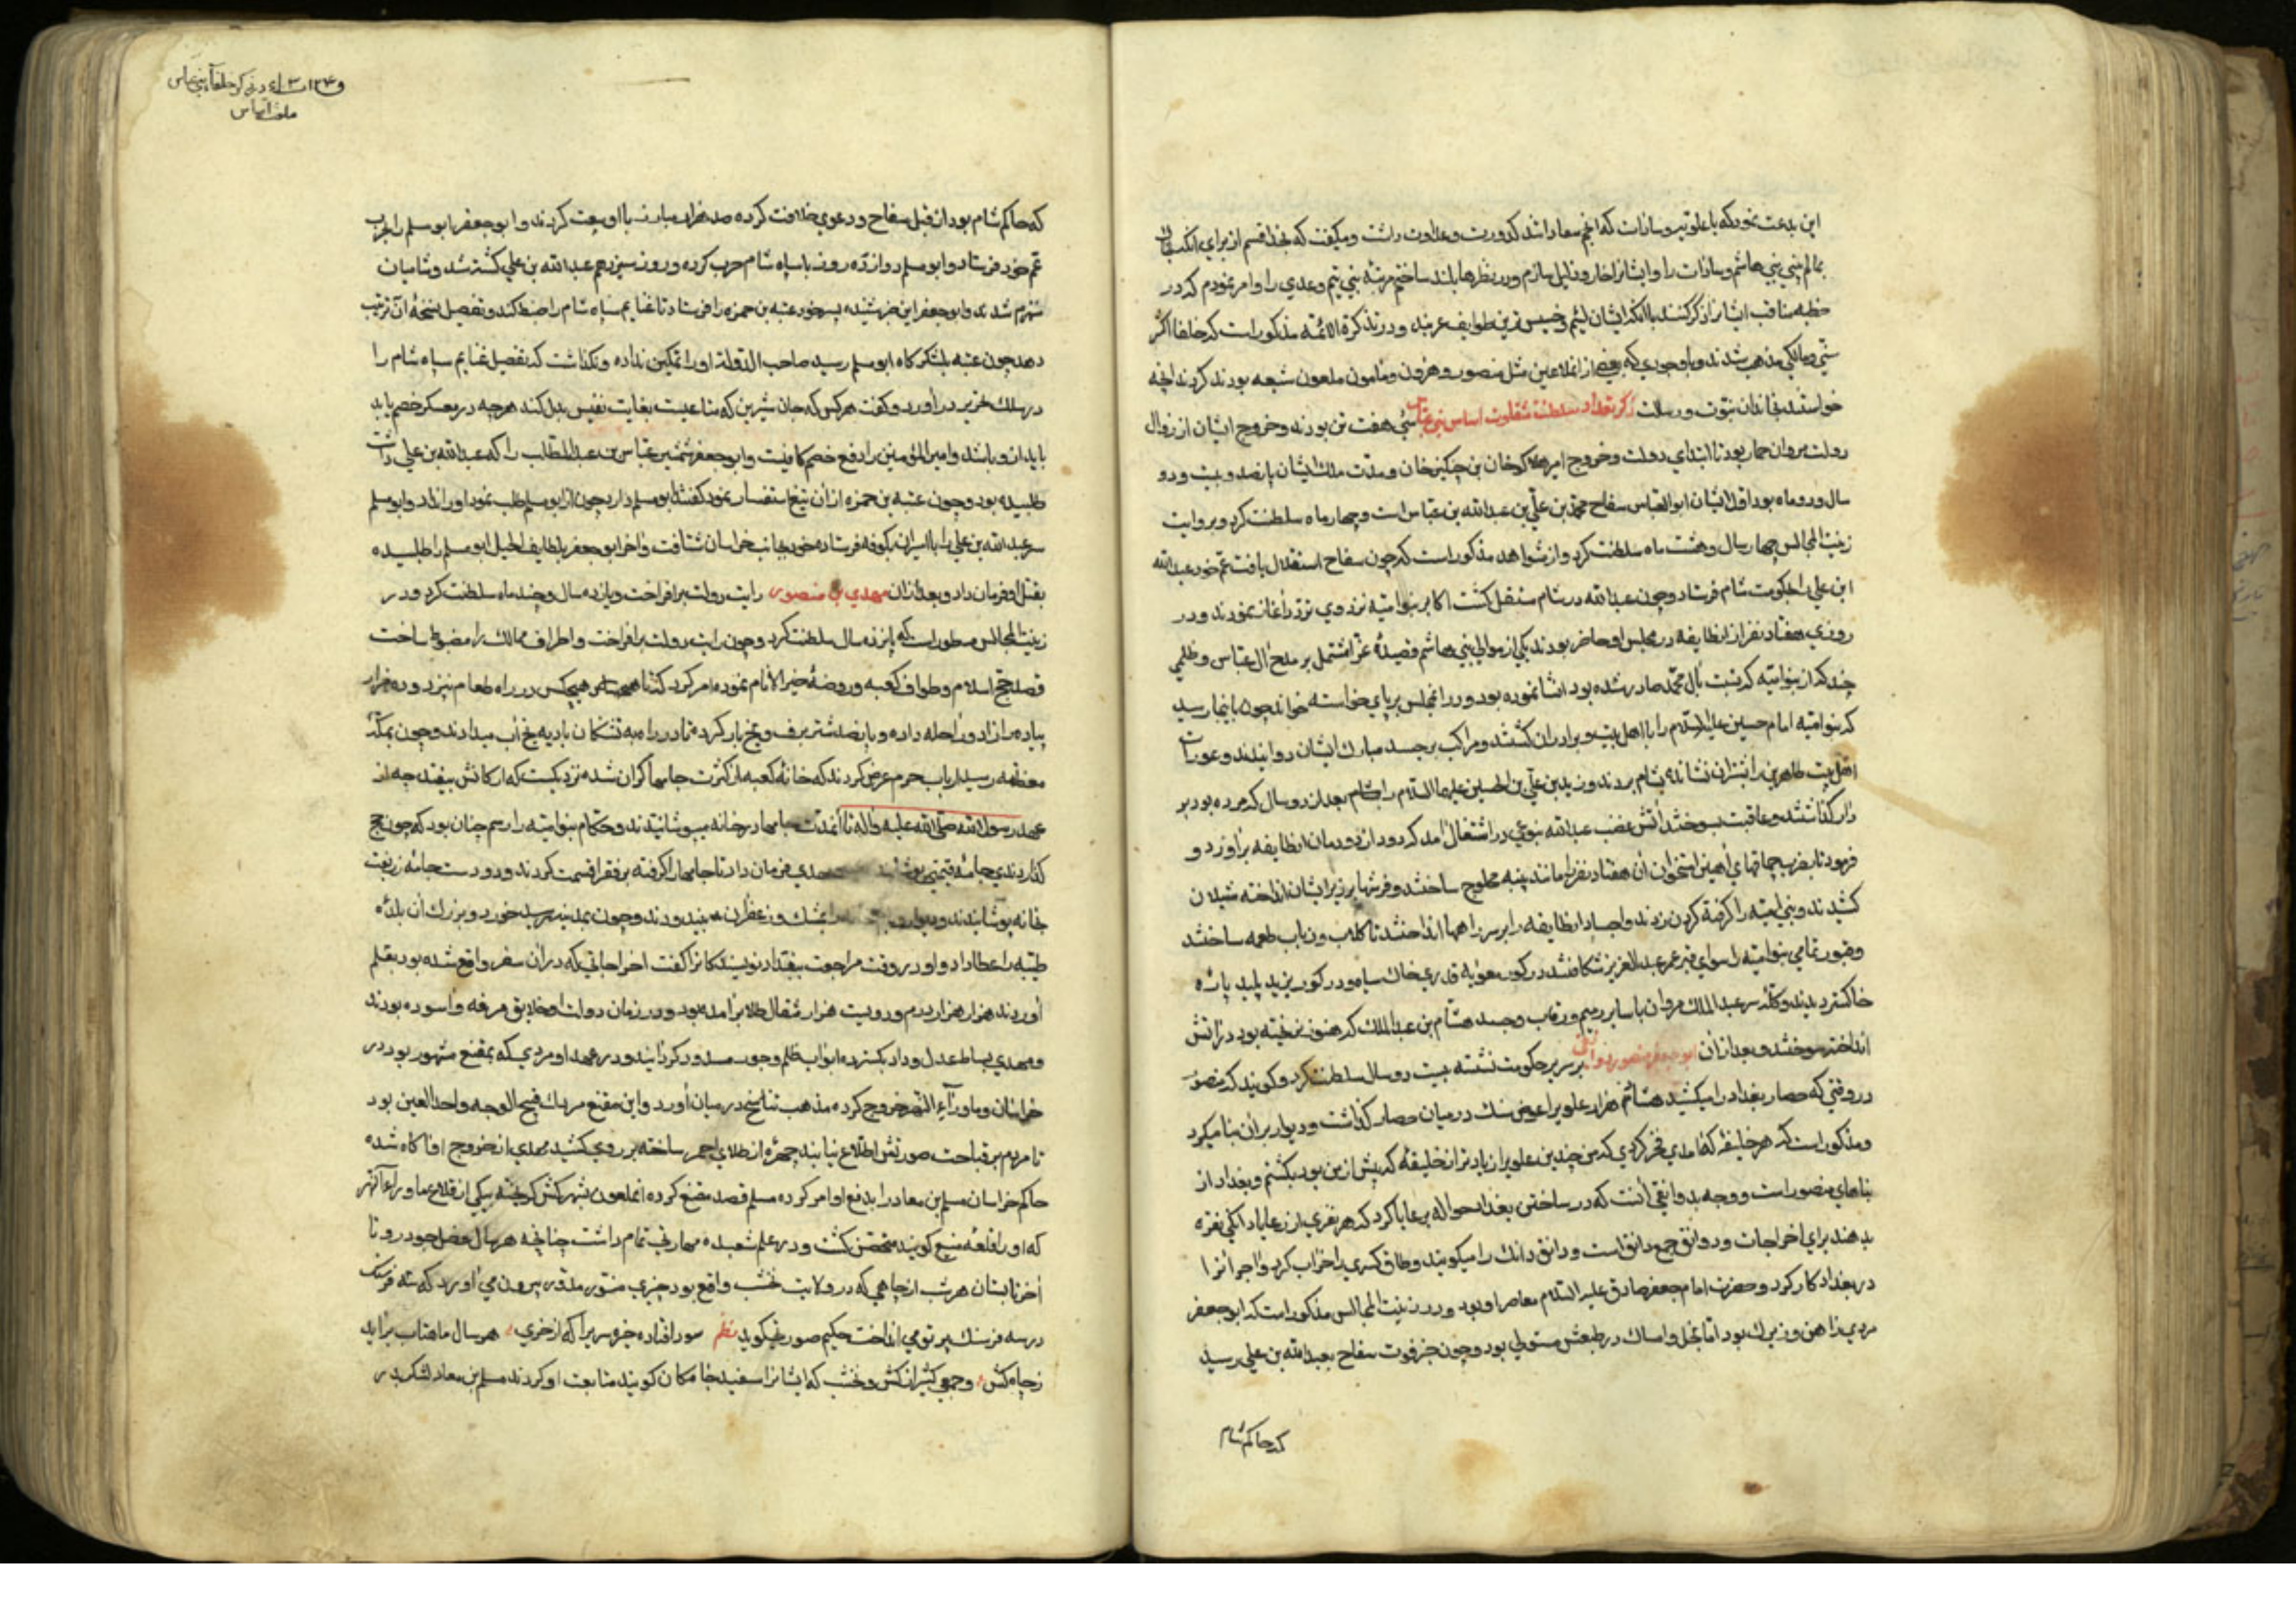 این بدعت نمود که با علویه و سادات که انجم سعادتند کدورت و عداوت داشت و میگفت که بخدا قسم از برای آنکه
بمالم بینی بنی هاشم و سادات را و ایشانرا خار و ذلیل سازم و در نظرها بلند ساختم مرتبه بنی تیم و عدی را و امر نمودم که در
خطبه مناقب ایشانرا ذکر کنند با آنکه ایشان لئیم و خسیس ترین طوایف عربند و در تذکرة الائمه مذکور است که خلفا اکثر
سنی و مالکی مذهب شدند و با وجودی که بعضی از انملاعین مثل منصور و هرون و مامون ملعون شیعه بودند کردند آنچه
خواستند بخاندان نبوت و رسالت ذکر تعداد سلطنة شقاوت اساس بنی عباس سی هفت تن بودند و خروج ایشان از زوال
دولت مروان حمار بود تا ابتدای دولت و خروج امیر هلاکوخان بن چنکیزخان و مدت ملک ایشان پانصد و بیست و دو
سال و دو ماه بود اول ایشان ابوالعباس سفاح محمد بن علی بن عبدالله بن عباس است و چهار ماه سلطنت کرد و بروایت
زینت المجالس چهار سال و هشت ماه سلطنت کرد و از شواهد مذکور است که چون سفاح استقلال یافت عم خود عبدالله
ابن علی را بحکومت شام فرستاد و چون عبدالله در شام مستقل کشت اکابر بنوامیه نزد وی تردد آغاز نمودند و در
روزی هفتاد نفر از انطایفه در مجلس او حاضر بودند یکی از موالی بنی هاشم قصیدهٔ غرا مشتمل بر مدح آل عباس و ظلمی
چند که از بنوامیه که نسبت بآل محمد صادر شده بود انشا نموده بود و در انمجلس بر پای خواسته خواند چون باینجا رسید
که بنوامیه امام حسین علیه السلام را با اهل بیت و برادران کشتند و مراکب بر جسد مبارک ایشان دوانیدند و عورات
اهل بیت طاهرین را بشتران نشانده بشام بردند و زید بن علی بن الحسین علیهما السلام را بعد از دو سال که مرده بود بر
دار کذاشتند و عاقبت بسوختند آتش غضب عبدالله بنوعی در اشتغال آمد که دود از دودمان انطایفه براورد و
فرمود تا بضرب چماقهای آهنین استخوان آن هفتاد نفر را مانند پنبه محلوج ساختند و فرشها بر زبر ایشان انداخته شیلان
کشیدند و بنی امیه را کرفته کردن زدند و اجساد انطایفه را بر سر راهها انداختند تا کلاب و ذیاب طعمه ساختند
و قبور تمامی بنوامیه را سوای قبر عمر عبدالعزیز شکافتند در کور معویه قدری خاک سیاه و در کور یزید پلید پاره
خاکستر دیدند و کله سر عبدالملک مروان با سایر رمیم و رقاب و جسد هشام بن عبدالملک که هنوز نریخته بود در آتش
انداخته سوختند و بعد از ان ابو جعفر منصور دوانقی بر سریر حکومت نشسته بیست دو سال سلطنت کرد و کویند که منصور
در وقتی که حصار بغداد را میکشید هشائم هزار علوی را عوض سنک در میان حصار کذاشت و دیوار بر ان بنا میکرد
و مذکور است که هر خلیفه که آمدی فخر کردی که من چندین علوی را زیاد تر از خلیفه که پیش از من بود بکشتم و بغداد از
بناهای منصور است و وجه بدوانقی آنست که در ساختن بغداد حواله بر عایا کرد که هر نفری از رعایا دانکی نقره
بدهند برای اخراجات و دوانق جمع دانق است و دانق دانک را میکویند و طاق کسری را خراب کرد و آجر آنرا
در بغداد کار کرد و حضرت امام جعفر صادق علیه السلام معاصر او بود و در زینت المجالس مذکور است که ابو جعفر
مردی ذاهن و زیرک بود اما بخل و امساک در طبعش مستولی بود و چون خبر فوت سفاح بعبدالله بن علی رسید
که حاکم شام
در ذکر خلفاء بنی عباس
که حاکم شام بود از قبل سفاح و دعوی خلافت کرده صد هزار مبارز با او بیعت کردند و ابو جعفر ابو مسلم را بحرب
عم خود فرستاد و ابو مسلم دوازده روز با سپاه شام حرب کرده و روز سیزدهم عبدالله بن علی کشته شد و شامیان
منهزم شدند و ابو جعفر این خبر شنیده پسر خود عتبه بن حمزه را فرستاد تا غنایم سپاه شام را ضبط کند و تفصیل نسخهٔ آن ترتیب
دهد چون عتبه بلشکرکاه ابو مسلم رسید صاحب الدولة او را تمکین نداده و نکذاشت که تفصیل غنایم سپاه شام را
در سلک تحریر در آورد و کفت هر کس که جان شیرین که متاعیست بغایت نفیس بدل کند هر چه در معسکر خصم یابد
باید از او باشد و امیر المؤمنین را دفع خصم کافیست و ابو جعفر شمشیر عباس بن عبدالمطلب را که عبدالله بن علی داشت
طلبیده بود و چون عتبه بن حمزه از ان تیغ استفسار نمود کفتند ابو مسلم دارد چون از ابو مسلم طلب نمود او را نداد و ابو مسلم
سر عبدالله بن علی را با اسیران بکوفه فرستاده خود بجانب خراسان شتافت و آخر ابو جعفر بلطایف الحیل ابو مسلم را طلبیده
بقتل او فرمان داد و بعد از ان مهدی بن منصور رایت دولت بر افراخت و یازده سال و چند ماه سلطنت کرد و در
زینت المجالس مسطور است که پانزده سال سلطنت کرد و چون رایت دولت بر افراخت و اطراف ممالک را مضبوط ساخت
قصد حج اسلام و طواف کعبه و روضهٔ خیر الانام نموده امر کرد که تا هیچکس در راه طعام نپزد و ده هزار
پیاده را زاد و راحله داده و پانصد شتر برف و یخ بار کرده تا در راه به تشنکان بادیه یخ آب میدادند و چون بمکهٔ
معظمه رسید ارباب حرم عرض کردند که خانهٔ کعبه از کثرت جامها کران شده نزدیکست که ارکانش بیفتد چه از
عهد رسول الله صلی الله علیه و آله تا آنمدت جامها در خانه میپوشانیدند و حکام بنوامیه را رسم چنان بود که چون حج
کذاردندی جامهٔ قیمتی مهدی فرمان داد تا جامها را کرفته بر فقرا قسمت کردند و دو دست جامهٔ زربفت
بخانه پوشانیدند و دیوار را بمشک و زعفران بیندودند و چون بمدینه رسید خورد و بزرک ان بلدهٔ
طیبه را عطا داد و او در وقت مراجعت ببغداد نویسندکانرا کفت اخراجاتی که در ان سفر واقع شده بود بقلم
آوردند هزار هزار درم و دویست هزار مثقال طلا بر آمده بود و در زمان دولت او خلایق مرفه و آسوده بودند
و مهدی بساط عدل و داد بکسترده ابواب ظلم و جور مسدود کردانید و در عهد او مردی که بمقنع مشهور بود در
خراسان و ماورآء النهر خروج کرده مذهب تناسخ در میان آورد و این مقنع مردک قبیح الوجه واحد العین بود
تا مردم بر قباحت صورتش اطلاع نیابند چهره از طلای احمر ساخته بر روی کشید مهدی از خروج او آکاه شده
حاکم خراسان مسلم بن معاد را بدفع او امر کرده مسلم قصد مقنع کرده انملعون بشهر کش کریخته بیکی از قلاع ماوراء النهر
که او را قلعه منیع کویند متحصن کشت و در علم شعبده مهارتی تمام داشت چنانچه هر سال فصل جود رو تا
آخر تابستان هر شب از چاهی که در ولایت نخشب واقع بود چیزی منور مدور بیرون می آورد که سه فرسنک
در سه فرسنک پرتو می انداخت حکیم صوری کوید نظم سود افتاده جز و سر برا که از خری هر سال ماهتاب براید
ز چاه کش و جمعی کثیر از کش و نخشب که ایشانرا سفید جامکان کویند متابعت او کردند مسلم بن معاد لشکر بدر